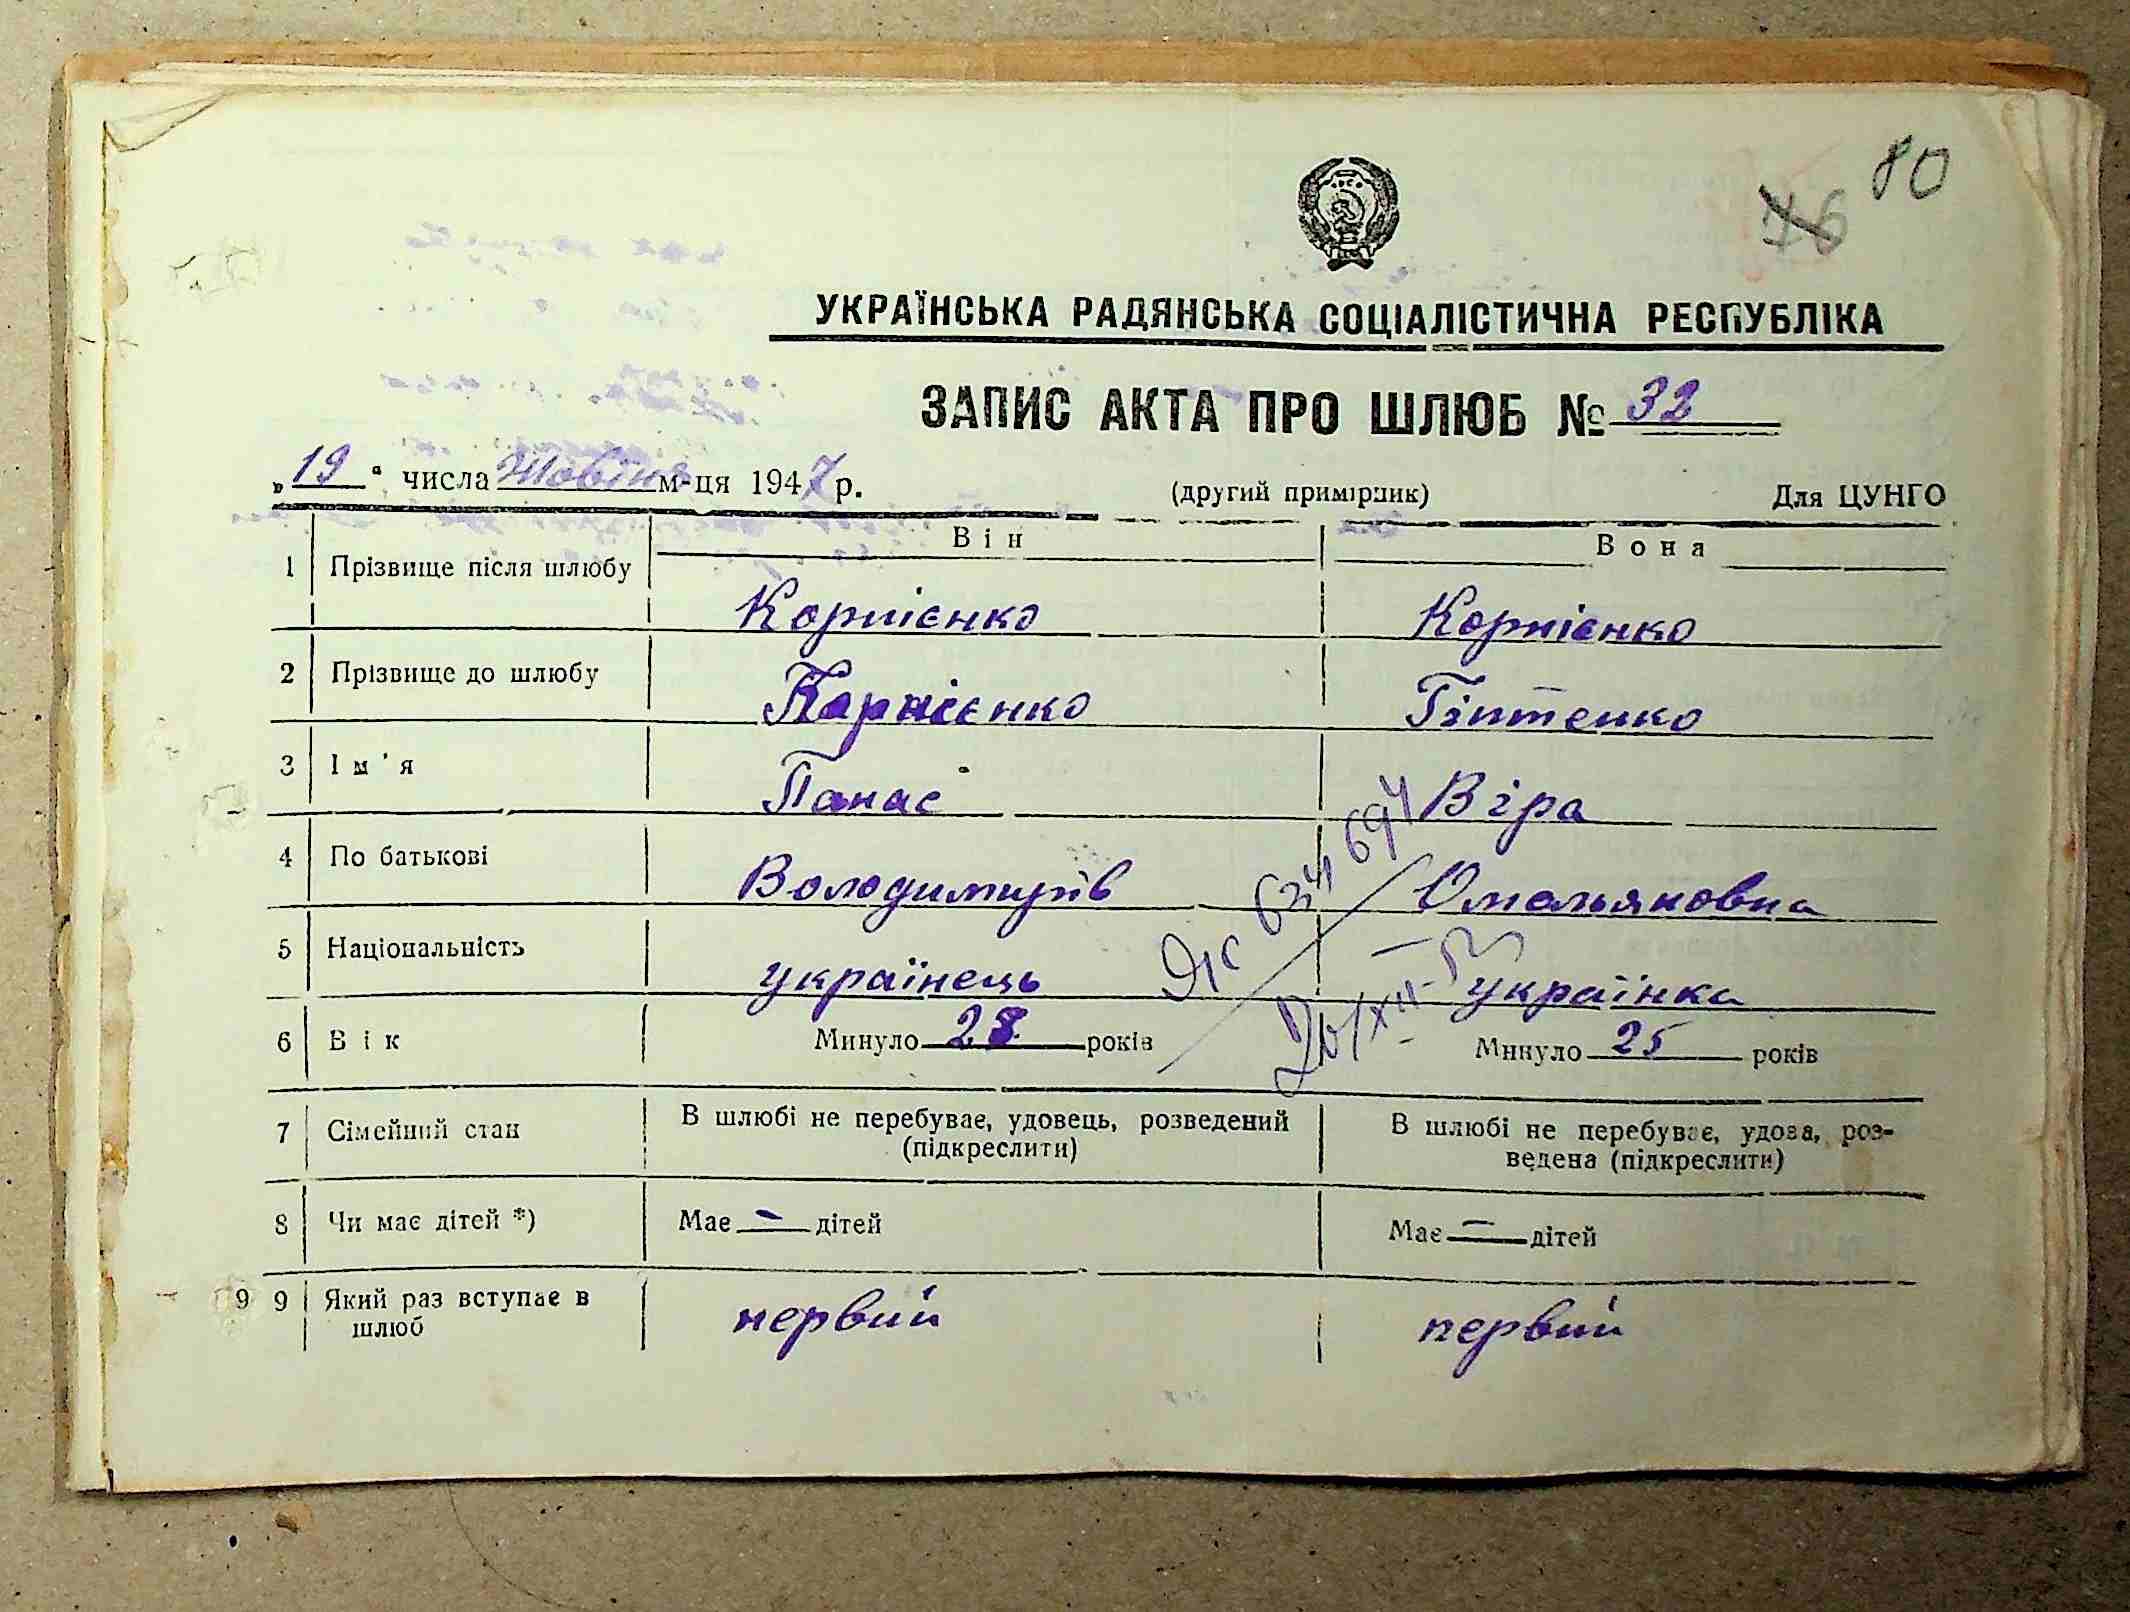 80
76
УКРАЇНСЬКА РАДЯНСЬКА СОЦІАЛІСТИЧНА РЕСПУБЛІКА
ЗАПИС АКТА ПРО ШЛЮБ № 32
„19“ числа Жовтня м-ця 1947 р. (другий примірник) Для ЦУНГО
Він Вона
1 Прізвище після шлюбу Корнієнко Корнієнко
2 Прізвище до шлюбу Корнієнко Гіптенко
3 Ім'я Панас Віра
4 По батькові Володимирів Омельяновна
5 Національність українець українка
6 Вік Минуло 28 років Минуло 25 років
7 Сімейний стан В шлюбі не перебуває, удовець, розведений (підкреслити) В шлюбі не перебуває, удова, роз-
ведена (підкреслити)
8 Чи має дітей *) Має — дітей Має — дітей
9 9 Який раз вступає в шлюб первий первий